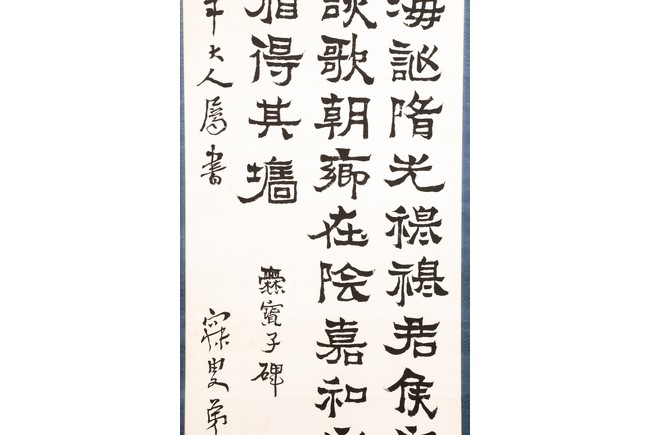 海誕隋光穆穆君侯
詠歌朝鄉在陰嘉和
循得其墻
爨寶子碑
大人屬書
寐叟弟